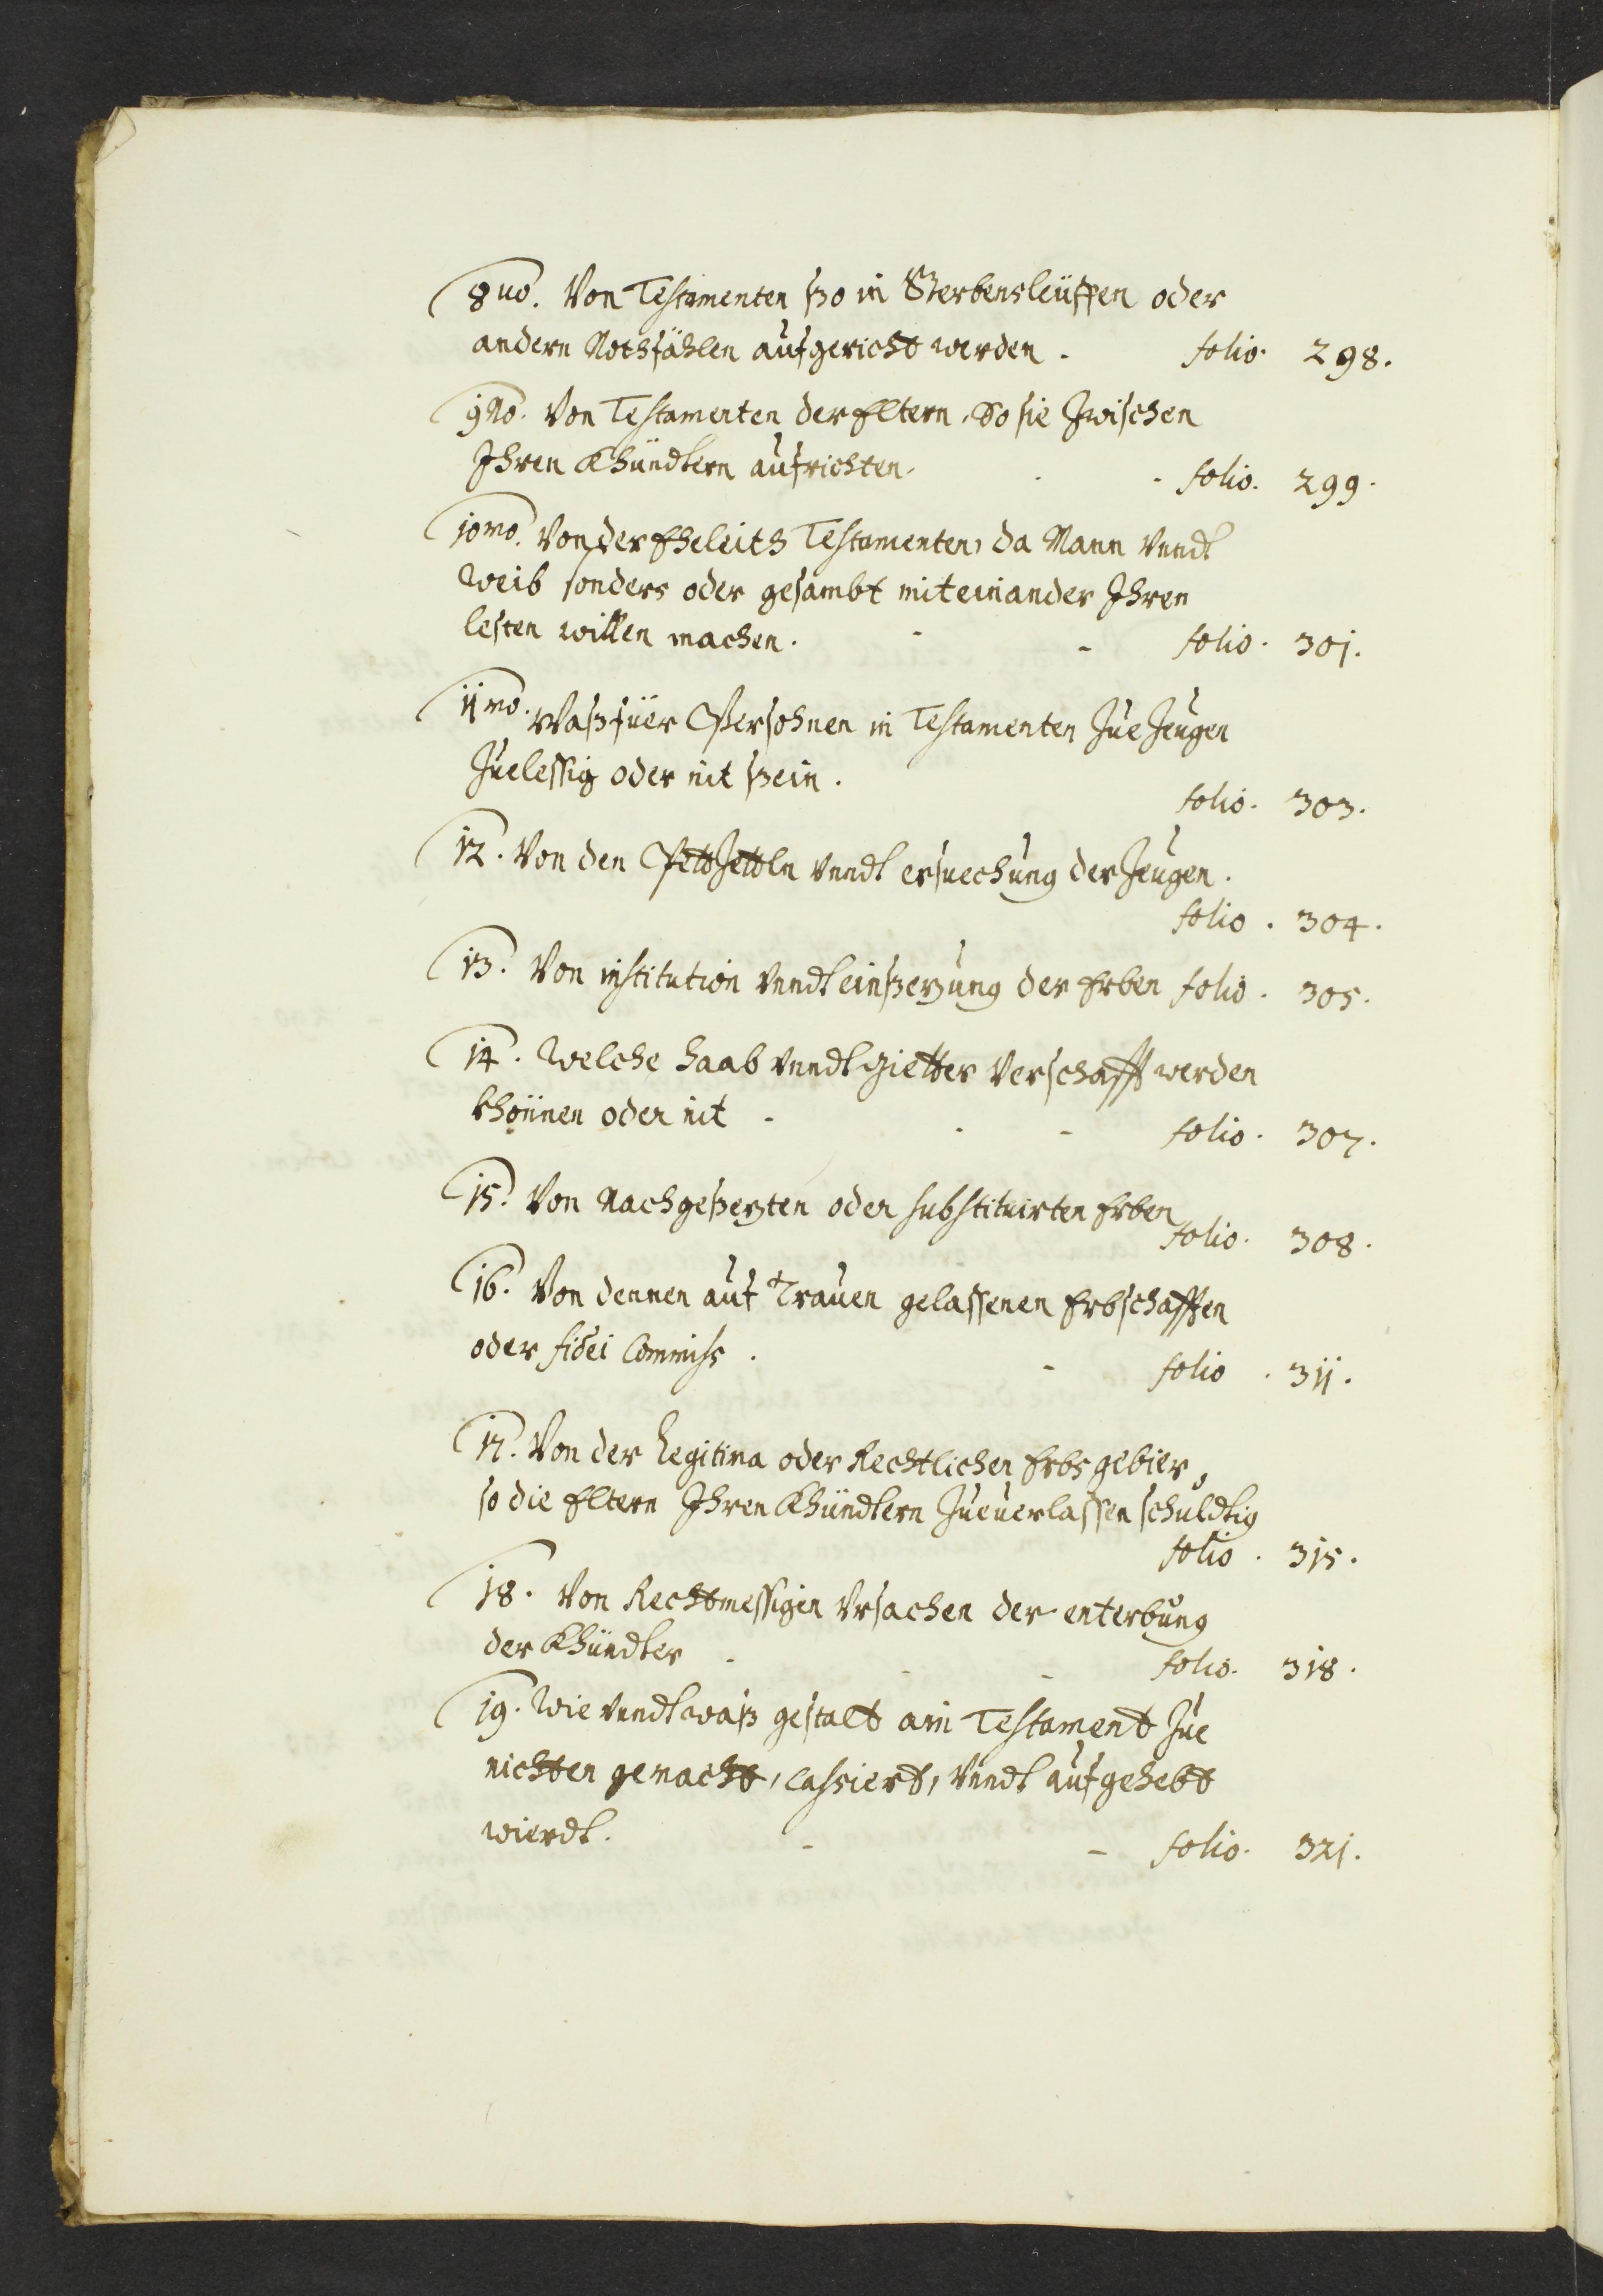 8uo. Von Testamenten so in Sterbensleüffen oder
andern Nothfählen aufgericht werden. folio. 298.
9no. Von Testamenten der Eltern, so sie zwischen
Ihren Khündtern aufrichten. - folio. 299.
10mo. Von der Eheleith Testamenten, da Mann vnndt
Weib sonders oder gesambt miteinander Ihren
lesten willen machen. - - folio. 301.
11mo. Waß füer Persohnen in Testamenten zue zeugen
zuelessig oder nit sein. folio. 303.
12. Von den Pettzettln vnndt ersuechung der zeugen.
folio. 304.
13. Von institution vnndt einsezung der Erben folio. 305.
14. Welche haab vnndt Güetter verschafft werden
khönnen oder nit - - - folio. 307.
15. Von Nachgesezten oder substituirten Erben
folio. 308.
16. Von dennen auf Trauen gelassenen Erbschafften
oder fidei Commiss. - folio. 311.
17. Von der Legitima oder Rechtlichen Erbsgebier,
so die Eltern Ihren Khündtern zueuerlassen schuldtig
folio. 315.
18. Von Rechtmessigen Vrsachen der enterbung
der Khündter - - - folio. 318.
19. Wie vnndt waß gestalt ain Testament zue
nichten gemacht, cassiert, vnndt aufgehebt
wierdt. - - folio. 321.